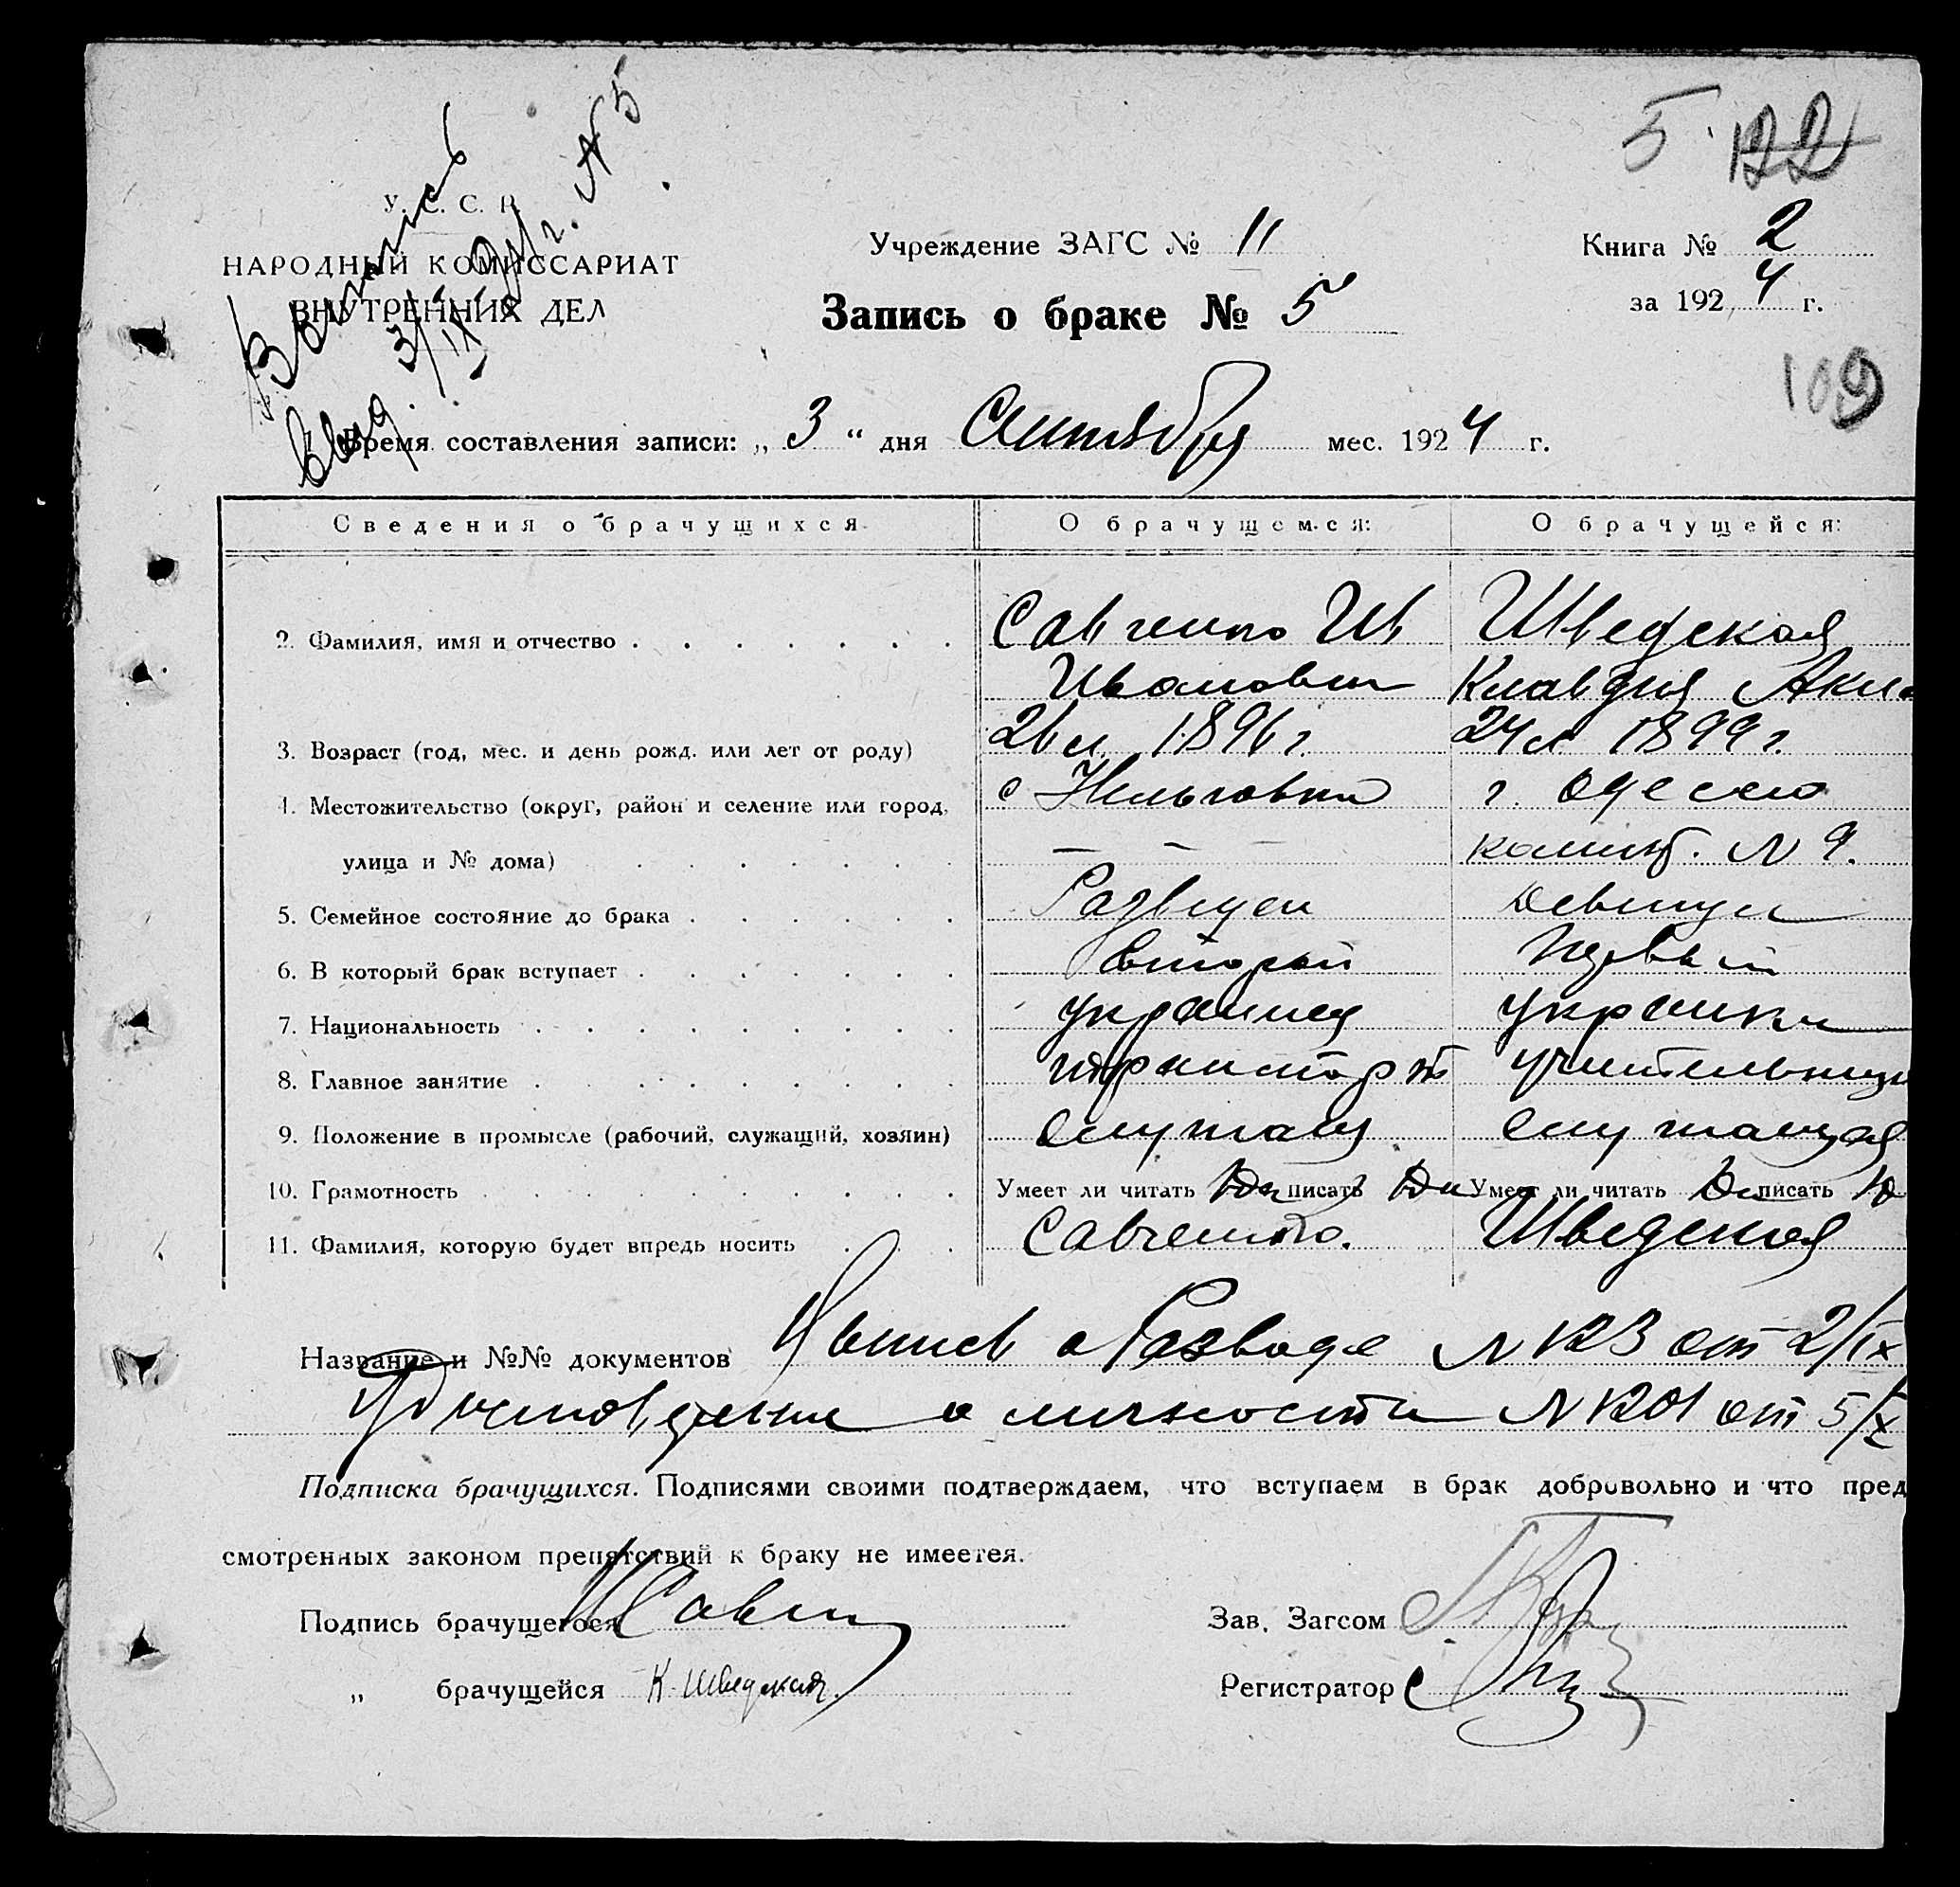 5 122
Выпись
выд. 3/IX-24 г. N 5
У. С. С. Р.
НАРОДНЫЙ КОМИССАРИАТ
ВНУТРЕННИХ ДЕЛ
Учреждение ЗАГС № 11
Книга № 2
за 1924 г.
Запись о браке № 5
109
Время составления записи: „ 3 “ дня Сентября мес. 1924 г.
Сведения о брачущихся О брачущемся: О брачущейся:
2. Фамилия, имя и отчество Савченко Ив Шведская
Иванович Клавдия
3. Возраст (год, мес. и день рожд. или лет от роду) 26 л. 1896 г. 24 л 1899 г.
4. Местожительство (округ, район и селение или город, с г. Одесса
улица и № дома) — — — N 9.
5. Семейное состояние до брака Разведен Девица
6. В который брак вступает второй Первый
7. Национальность украинец украинка
8. Главное занятие учительница
9. Положение в промысле (рабочий, служащий, хозяин) служащ служащая
10. Грамотность Умеет ли читать Да писать Да Умеет ли читать Да писать
11. Фамилия, которую будет впредь носить Савченко. Шведская
Название и №№ документов Выпись о Разводе N 123 от 2/IX
Удостоверение о личности N 1201 от 5/
Подписка брачущихся. Подписями своими подтверждаем, что вступаем в брак добровольно и что пред
смотренных законом препятствий к браку не имеется.
Подпись брачущегося Зав. Загсом
„ брачущейся К Шведская. Регистратор